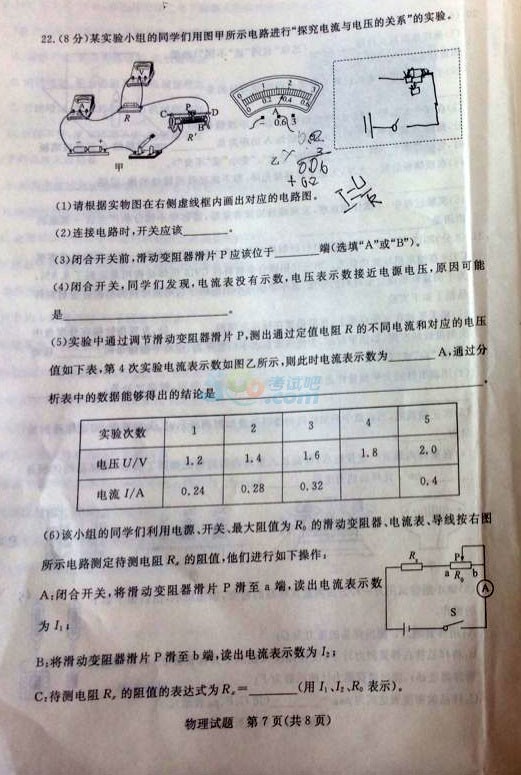 22.(8 分)某实验小组的同学们用图甲所示电路进行“探究电流与电压的关系”的实验。
R
C P D
B
R'
甲
0 1 2 3
0 0.2 0.4 0.6
A
- 0.6 3
乙
0.02
× 3
0.06
+ 0.2
I=U/R
(1)请根据实物图在右侧虚线框内画出对应的电路图。
(2)连接电路时,开关应该______。
(3)闭合开关前,滑动变阻器滑片 P 应该位于______端(选填“A”或“B”)。
(4)闭合开关,同学们发现,电流表没有示数,电压表示数接近电源电压,原因可能
是______。
(5)实验中通过调节滑动变阻器滑片 P,测出通过定值电阻 R 的不同电流和对应的电压
值如下表,第 4 次实验电流表示数如图乙所示,则此时电流表示数为______A,通过分
析表中的数据能够得出的结论是______。
考试吧
.com
实验次数 1 2 3 4 5
电压 U/V 1.2 1.4 1.6 1.8 2.0
电流 I/A 0.24 0.28 0.32 0.4
(6)该小组的同学们利用电源、开关、最大阻值为 R₀ 的滑动变阻器、电流表、导线按右图
所示电路测定待测电阻 Rₓ 的阻值,他们进行如下操作:
A:闭合开关,将滑动变阻器滑片 P 滑至 a 端,读出电流表示数
为 I₁;
B:将滑动变阻器滑片 P 滑至 b 端,读出电流表示数为 I₂;
C:待测电阻 Rₓ 的阻值的表达式为 Rₓ=______(用 I₁、I₂、R₀ 表示)。
Rₓ P
a R₀ b
A
S
物理试题 第 7 页(共 8 页)